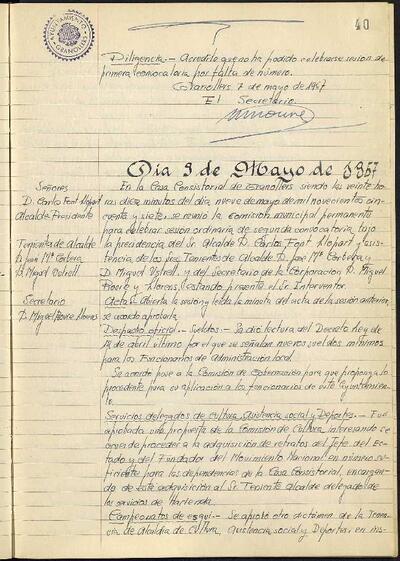 40
AYUNTAMIENTO
GRANOLLERS
Diligencia.- Acredito que no ha podido celebrarse sesión de
primera convocatoria por falta de número.
Granollers 7 de mayo de 1957
El Secretario
Día 9 de Mayo de 1957
Señores
D. Carlos Font Llopart
Alcalde Presidente
Tenientes de Alcalde
D. José Mª Corbera
D. Miguel Vstrell
Secretario
D. Miguel Llorens
En la Casa Consistorial de Granollers siendo las veinte ho-
ras diez minutos del día nueve de mayo de mil novecientos cin-
cuenta y siete, se reunió la comisión municipal permanente
para celebrar sesión ordinaria de segunda convocatoria bajo
la presidencia del Sr. Alcalde D. Carlos Font Llopart y asis-
tencia de los Srs. Tenientes de Alcalde D. José Mª Corbera y
D. Miguel y del Secretario de la Corporación D. Miguel
y Llorens, estando presente el Sr. Interventor.
Acta.- Abierta la sesión y leída la minuta del acta de la sesión anterior,
se acordó aprobarla.
Despacho oficial.- Sueldos.- Se dió lectura del Decreto Ley de
12 de abril último por el que se señalan nuevos sueldos mínimos
para los Funcionarios de administración local.
Se acordó pase a la Comisión de Gobernación para que proponga lo
procedente para su aplicación a los funcionarios de este Ayuntamien-
to.
Servicios delegados de Cultura, Asistencia social y Deportes.- Fué
aprobada una propuesta de la Comisión de Cultura, interesando se
acuerde proceder a la adquisición de retratos del Jefe del Es-
tado y del Fundador del Movimiento Nacional en número su-
ficiente para las dependencias de la Casa Consistorial, encargan-
do de esta adquisición al Sr. Teniente Alcalde delegado de
los servicios de Hacienda.
Campeonatos de esquí.- Se aprobó otro dictamen de la Tenen-
cia de Alcaldía de Cultura, Asistencia social y Deportes, en